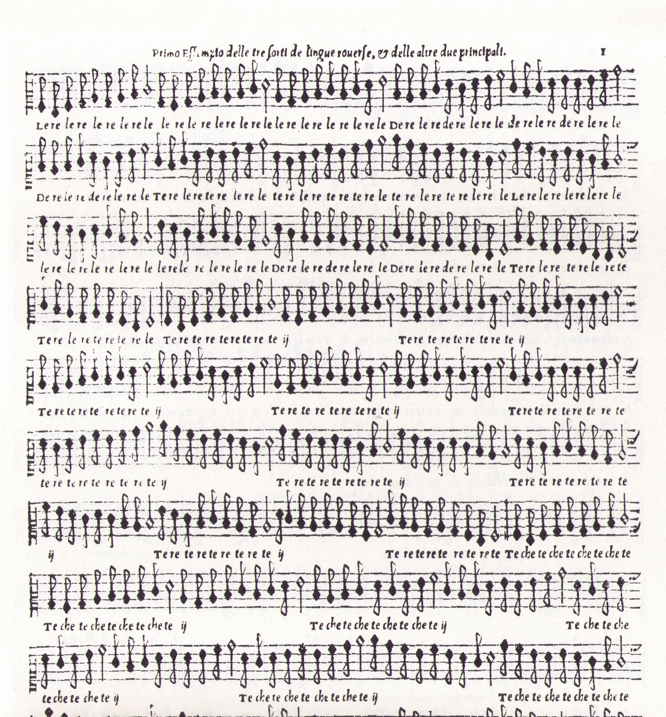 Primo Essempio delle tre sorti de lingue riverse, & delle altre due principali. 1
Le re le re le re le re le le re le re le re le re le le re le re le re le re le De re le re de re le re le de re le re de re le re le
De re le re de re le re le Te re le re te re le re le te re le re te re le re le te re le re te re le re le Le re le re le re le re le
le re le re le re le re le le re le re le re le re le De re le re de re le re le De re le re de re le re le Te re le re te re le re te
Te re le re te re te re le Te re te re te re te re te ij Te re te re te re te re te ij
Te re te re te re te re te ij Te re te re te re te re te ij Te re te re te re te re te
te re te re te re te re te ij Te re te re te re te re te ij Te re te re te re te re te
ij Te re te re te re te re te ij Te re te re te re te re te Te che te che te che te che te
Te che te che te che te che te ij Te che te che te che te che te ij Te che te che
te che te che te ij Te che te che te che te che te ij Te che te che te che te che te